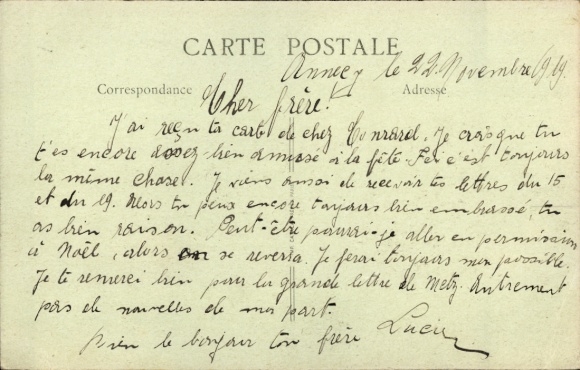 CARTE POSTALE
Annecy le 22 Novembre 1919.
Correspondance
Adresse
Cher frère!
J'ai reçu ta carte de chez Conrard. Je crois que tu
t'es encore assez bien amusé à la fête. Ici c'est toujours
la même chose. Je viens aussi de recevoir tes lettres du 15
et du 19. Alors tu peux encore toujours bien embrassé, tu
as bien raison. Peut-être pourrai-je aller en permission
à Noël, alors on se reverra. Je ferai toujours mon possible.
Je te remerci bien pour la grande lettre de Metz. Autrement
pas de nouvelles de ma part.
Bien le bonjour ton frère Lucien